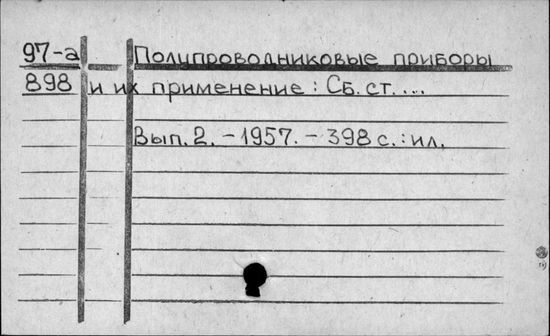 97-а Полупроводниковые приборы
898 и их применение : Сб. ст. ...
Вып. 2. - 1957. - 398 с. : ил.